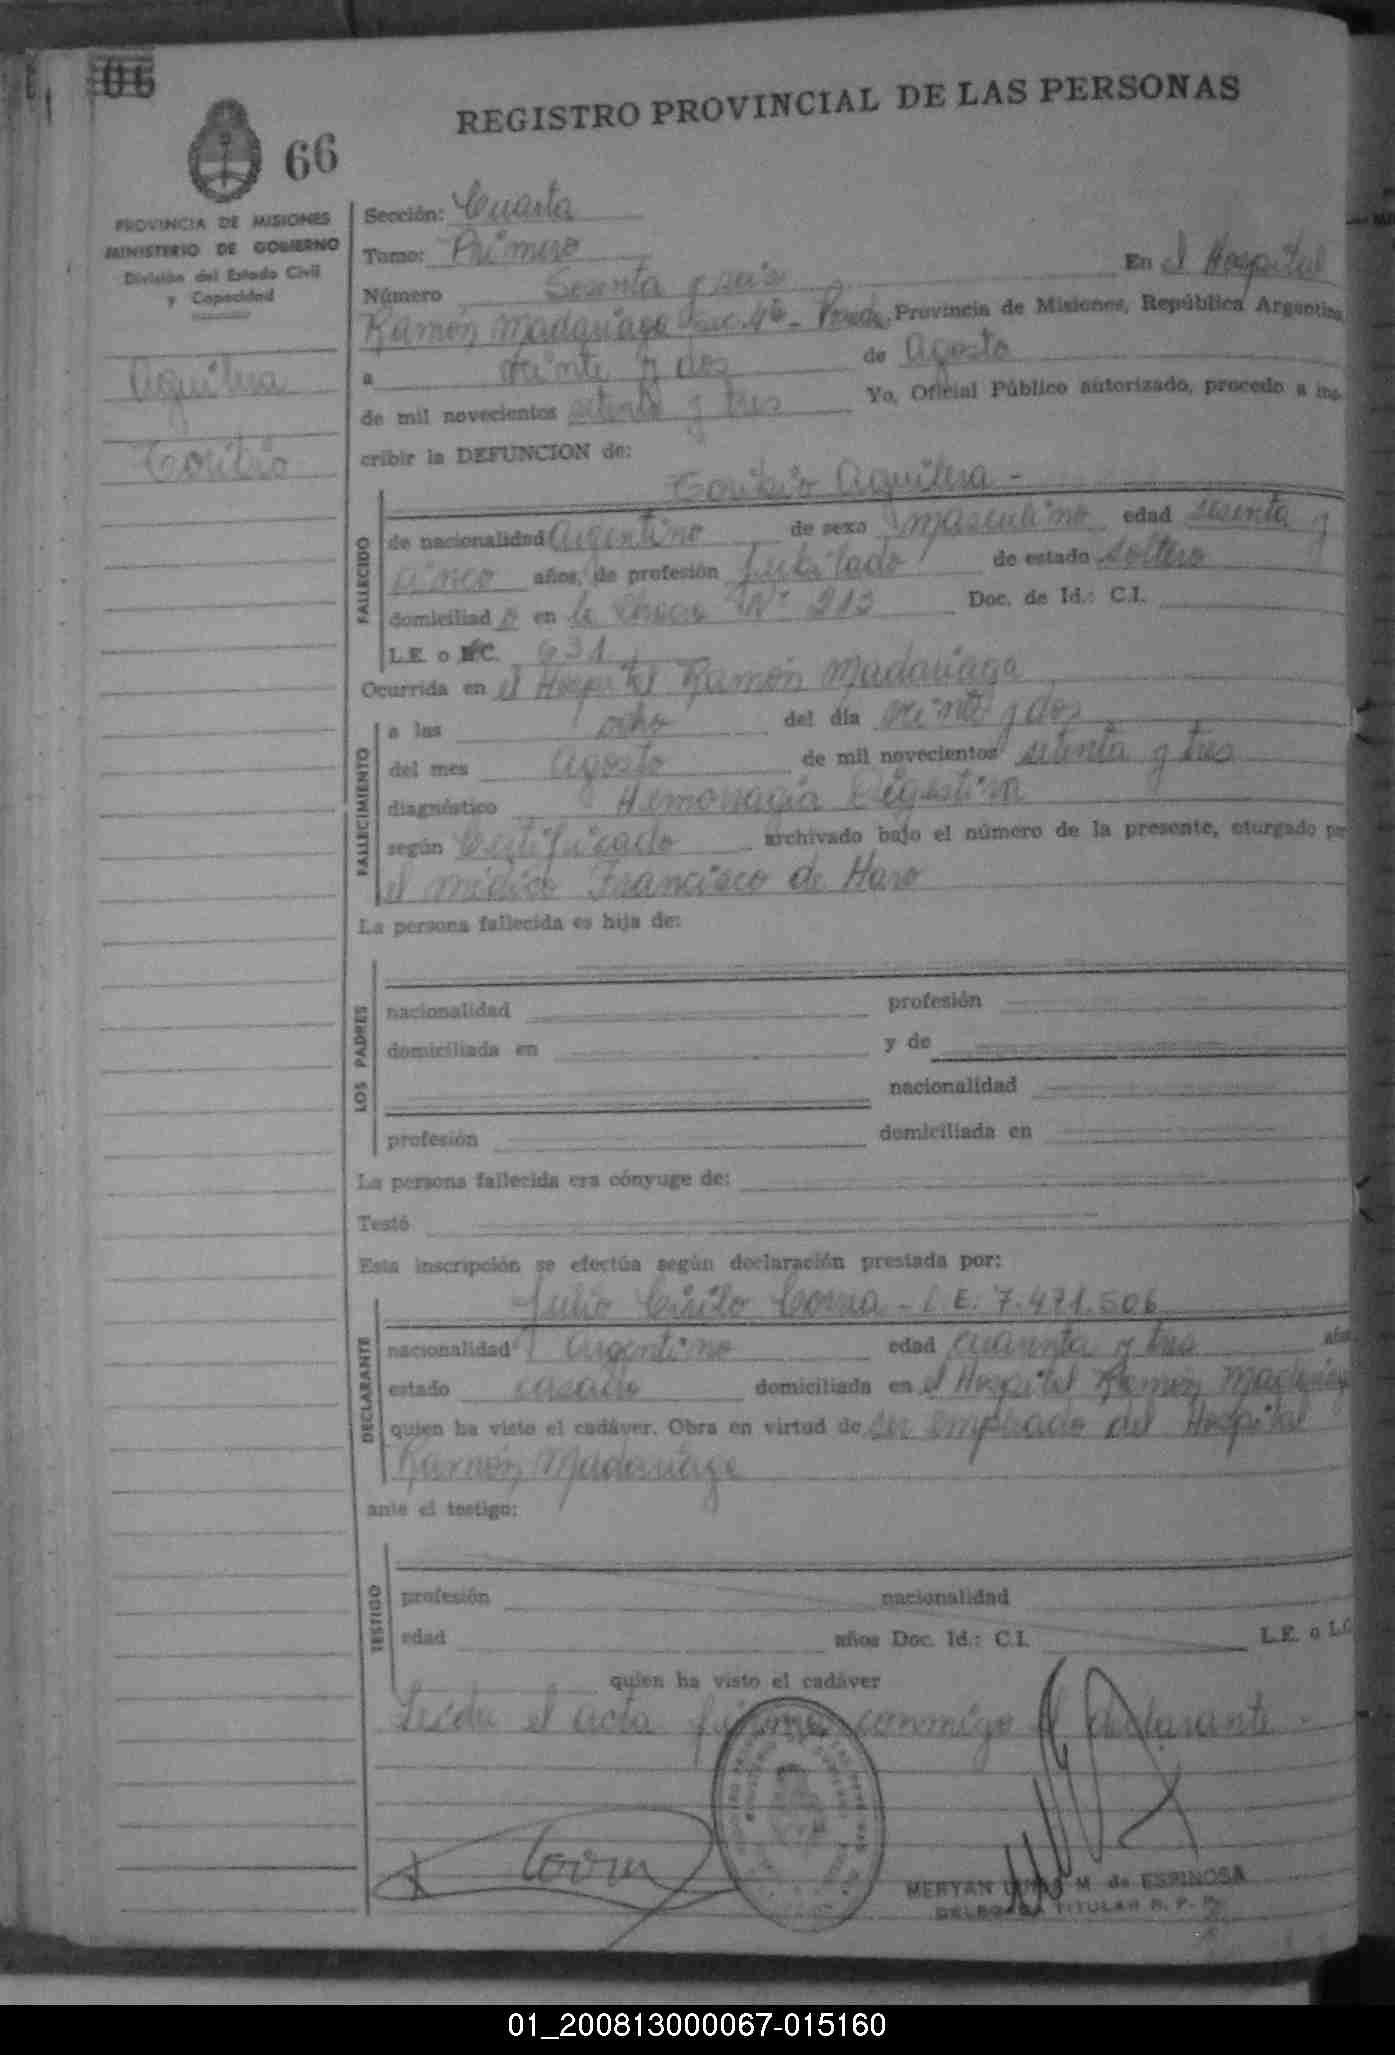 06
66
REGISTRO PROVINCIAL DE LAS PERSONAS
PROVINCIA DE MISIONES
MINISTERIO DE GOBIERNO
División del Estado Civil
y Capacidad
Aguilera
Toribio
Sección: Cuarta
Tomo: Primero
Número Sesenta y seis En el Hospital
Ramón Madariaga Sec. 4ta - Posadas, Provincia de Misiones, República Argentina,
a veinte y dos de Agosto
de mil novecientos setenta y tres Yo, Oficial Público autorizado, procedo a ins-
cribir la DEFUNCION de:
Toribio Aguilera -
FALLECIDO
de nacionalidad Argentino de sexo masculino edad sesenta y
cinco años, de profesión Jubilado de estado soltero
domiciliad o en Chaco Nº 213 Doc. de Id.: C.I.
L.E. o C. 631
Ocurrida en el Hospital Ramón Madariaga
FALLECIMIENTO
a las ocho del día veinte y dos
del mes Agosto de mil novecientos setenta y tres
diagnóstico Hemorragia Digestiva
según Certificado archivado bajo el número de la presente, oturgado por
el médico Francisco de Haro
La persona fallecida es hija de:
LOS PADRES
nacionalidad profesión
domiciliada en y de
nacionalidad
profesión domiciliada en
La persona fallecida era cónyuge de:
Testó
Esta inscripción se efectúa según declaración prestada por:
DECLARANTE
Julio Cirilo Correa - L.E. 7.471.506
nacionalidad Argentino edad cuarenta y tres años
estado casado domiciliada en el Hospital Ramón Madariaga
quien ha visto el cadáver. Obra en virtud de ser empleado del Hospital
Ramón Madariaga
ante el testigo:
TESTIGO
profesión nacionalidad
edad años Doc. Id.: C.I. L.E. o L.C.
quien ha visto el cadáver
Leída el acta firma conmigo el declarante -
MERYAN M de ESPINOSA
DELEGADA TITULAR R. P. P.
01_200813000067-015160